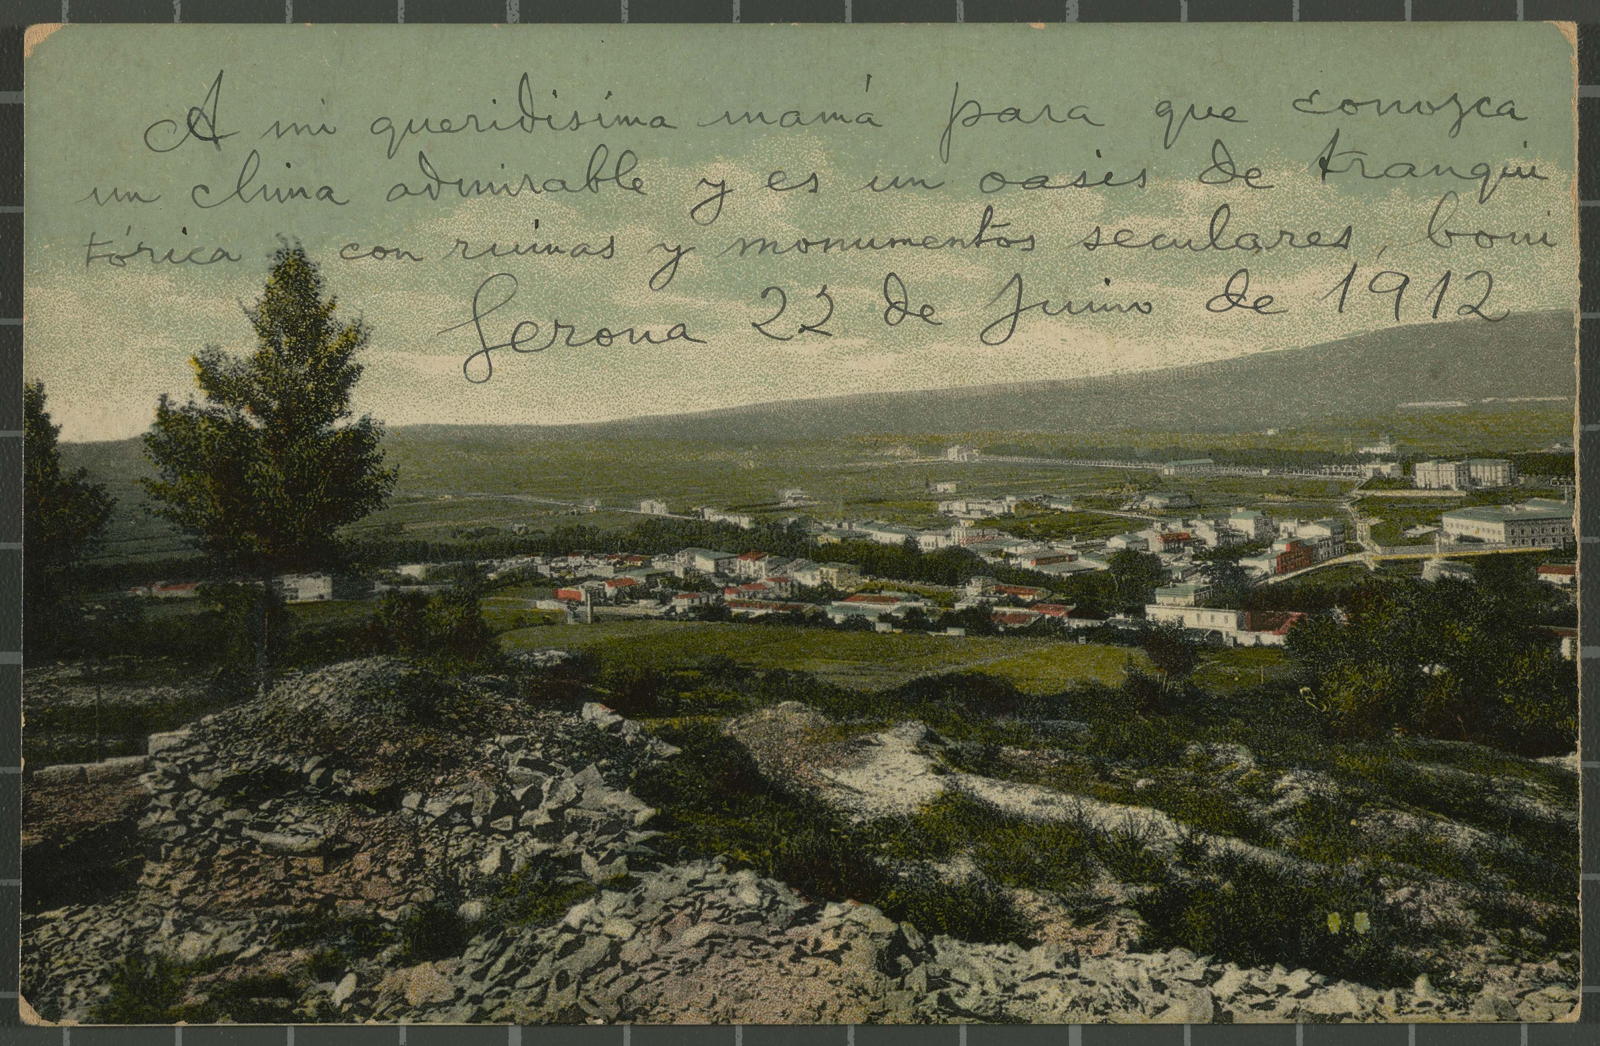 A mi queridisima mamá para que conozca
un clima admirable y es un oasis de tranqui
tórica con ruinas y monumentos seculares, boni
Gerona 22 de Junio de 1912